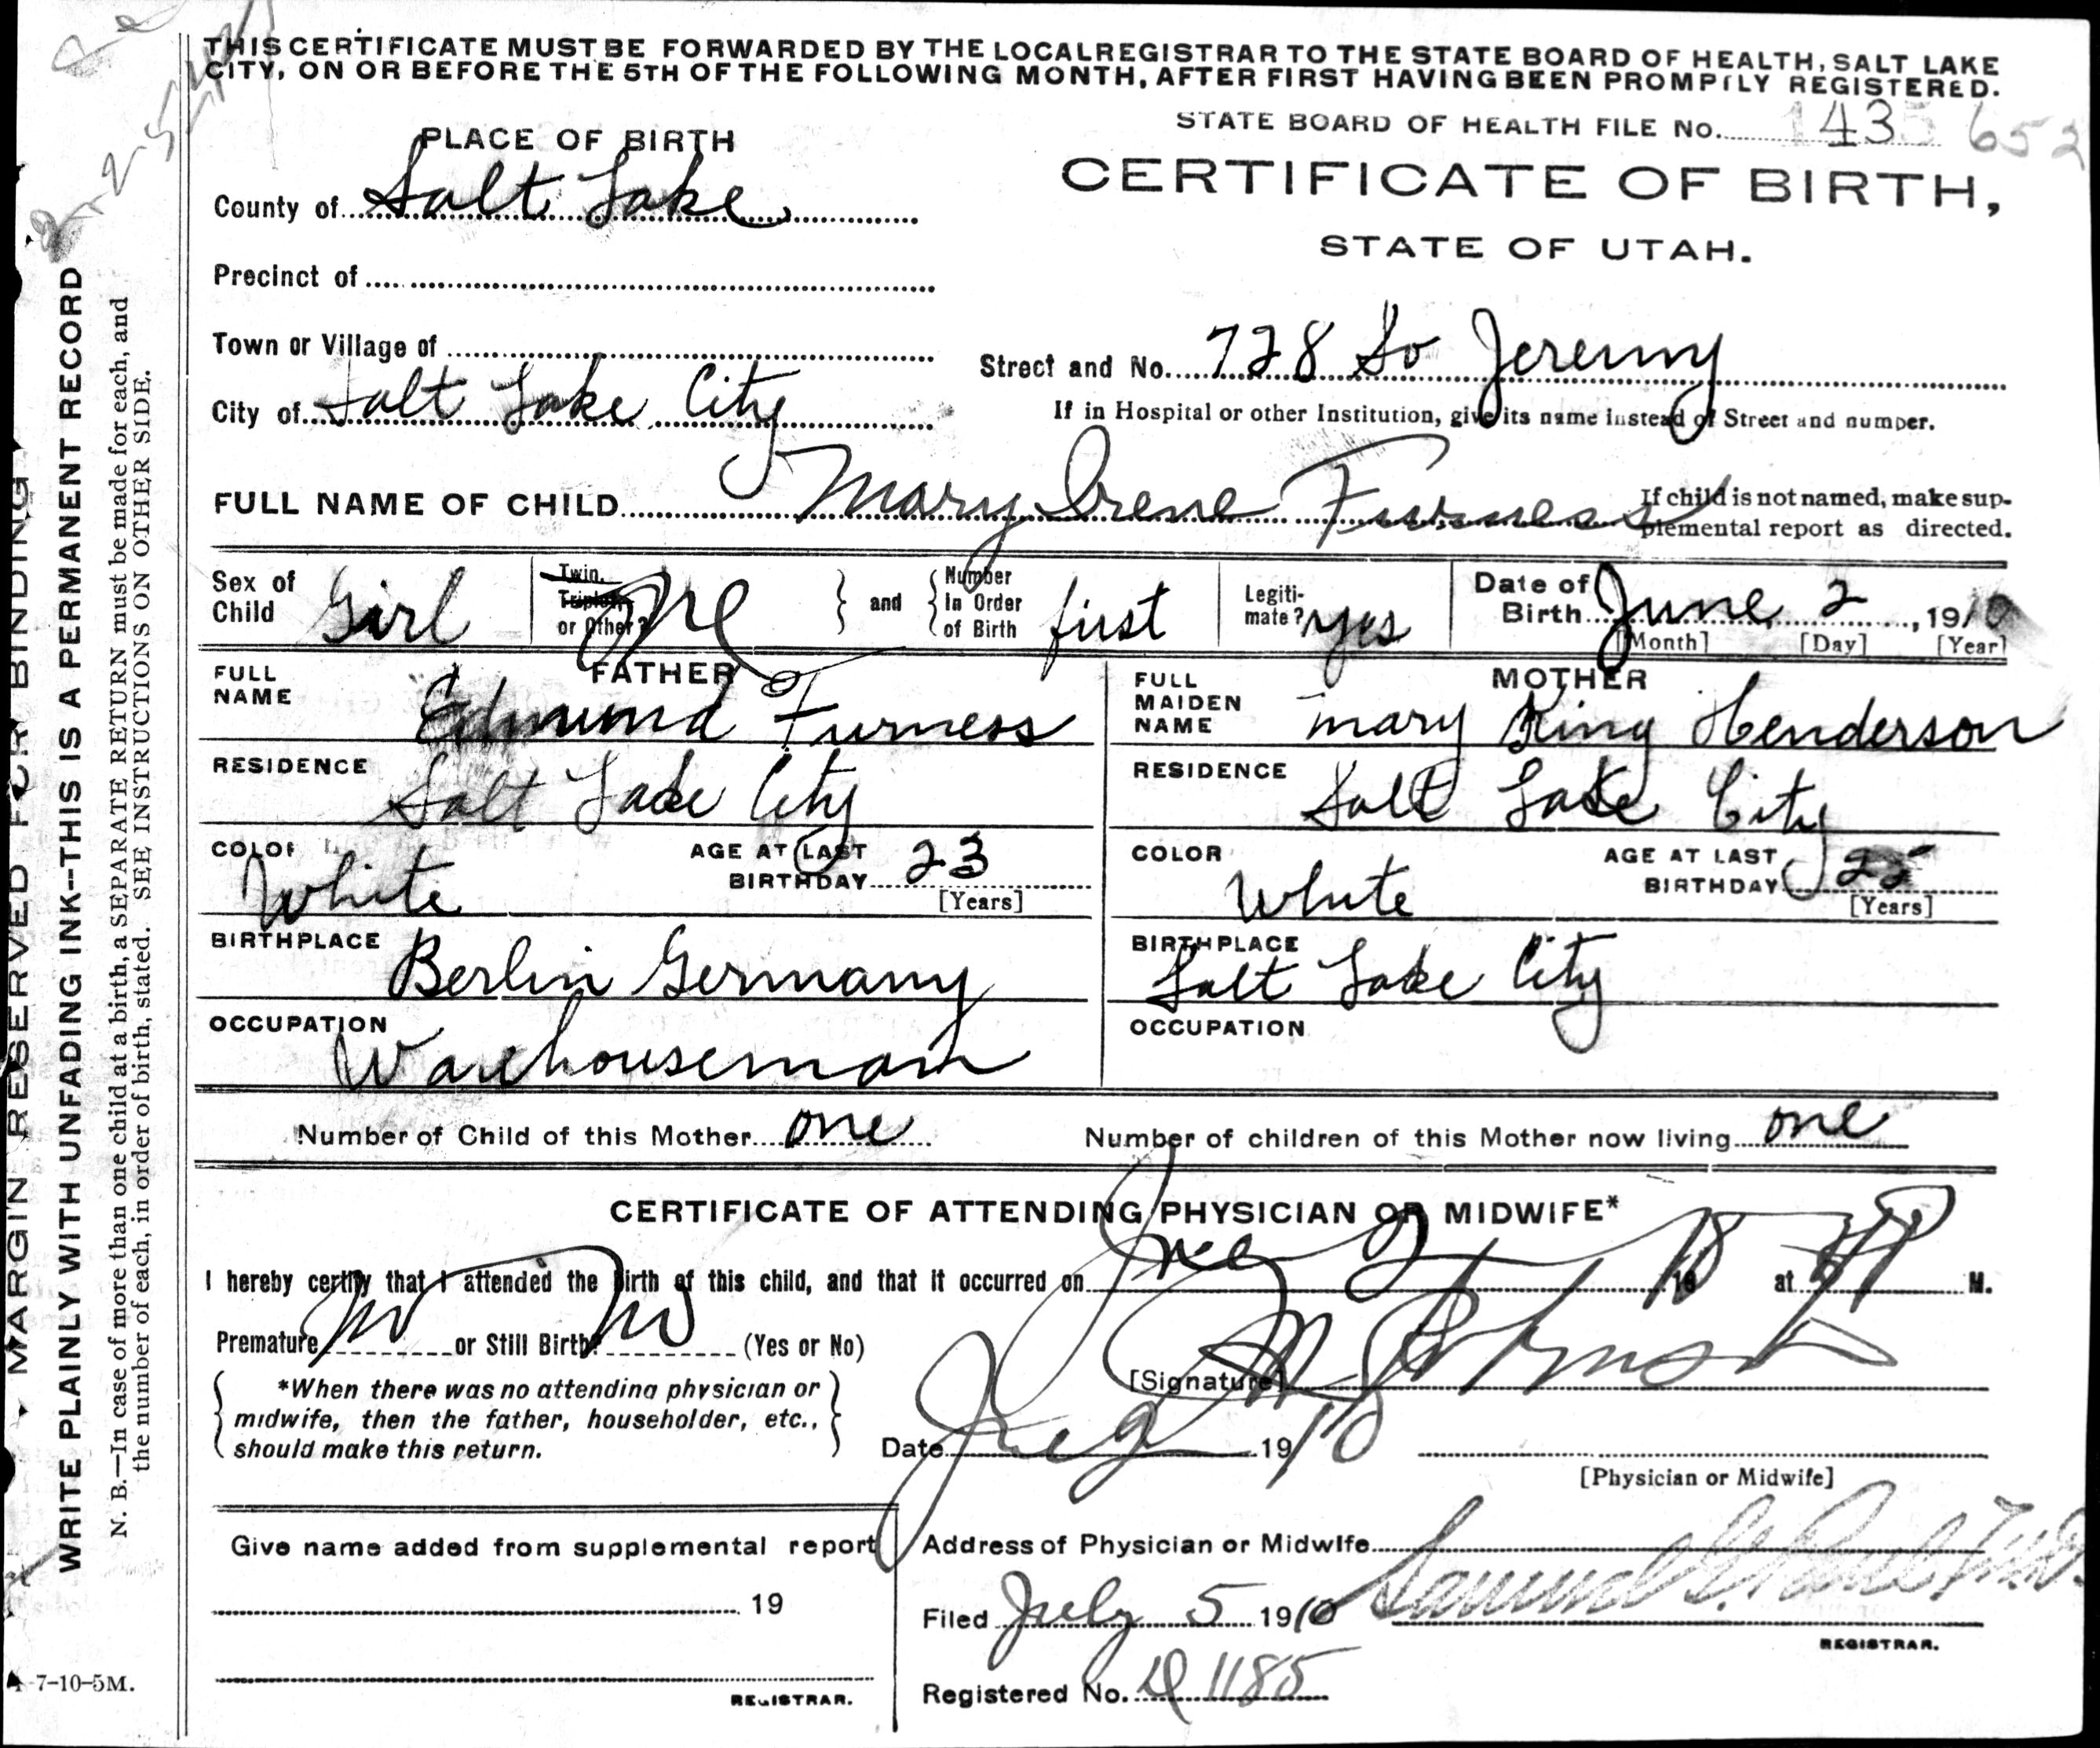 THIS CERTIFICATE MUST BE FORWARDED BY THE LOCAL REGISTRAR TO THE STATE BOARD OF HEALTH, SALT LAKE
CITY, ON OR BEFORE THE 5TH OF THE FOLLOWING MONTH, AFTER FIRST HAVING BEEN PROMPTLY REGISTERED.
STATE BOARD OF HEALTH FILE No. 143 652
PLACE OF BIRTH
CERTIFICATE OF BIRTH,
STATE OF UTAH.
County of Salt Lake
Precinct of
Town or Village of
Street and No. 728 So Jeremy
City of Salt Lake City
If in Hospital or other Institution, give its name instead of Street and number.
FULL NAME OF CHILD Mary Irene Furness
If child is not named, make sup-
plemental report as directed.
Sex of Child Girl
Twin, Triplet, or Other? One
and Number In Order of Birth first
Legiti-mate? yes
Date of Birth June 2, 1910
[Month] [Day] [Year]
FATHER
FULL NAME Edmund Furness
RESIDENCE Salt Lake City
COLOR White
AGE AT LAST BIRTHDAY 23
[Years]
BIRTHPLACE Berlin Germany
OCCUPATION Warehouseman
MOTHER
FULL MAIDEN NAME Mary King Henderson
RESIDENCE Salt Lake City
COLOR White
AGE AT LAST BIRTHDAY 25
[Years]
BIRTHPLACE Salt Lake City
OCCUPATION
Number of Child of this Mother one
Number of children of this Mother now living one
CERTIFICATE OF ATTENDING PHYSICIAN OR MIDWIFE*
I hereby certify that I attended the birth of this child, and that it occurred on 19 at M.
Premature No or Still Birth? No (Yes or No)
[Signature]
*When there was no attending physician or
midwife, then the father, householder, etc.,
should make this return.
Date 1910
[Physician or Midwife]
Give name added from supplemental report
19
REGISTRAR.
Address of Physician or Midwife
Filed July 5 1910
REGISTRAR.
Registered No. 1185
MARGIN RESERVED FOR BINDING
WRITE PLAINLY WITH UNFADING INK--THIS IS A PERMANENT RECORD
N. B.—In case of more than one child at a birth, a SEPARATE RETURN must be made for each, and
the number of each, in order of birth, stated. SEE INSTRUCTIONS ON OTHER SIDE.
7-10-5M.